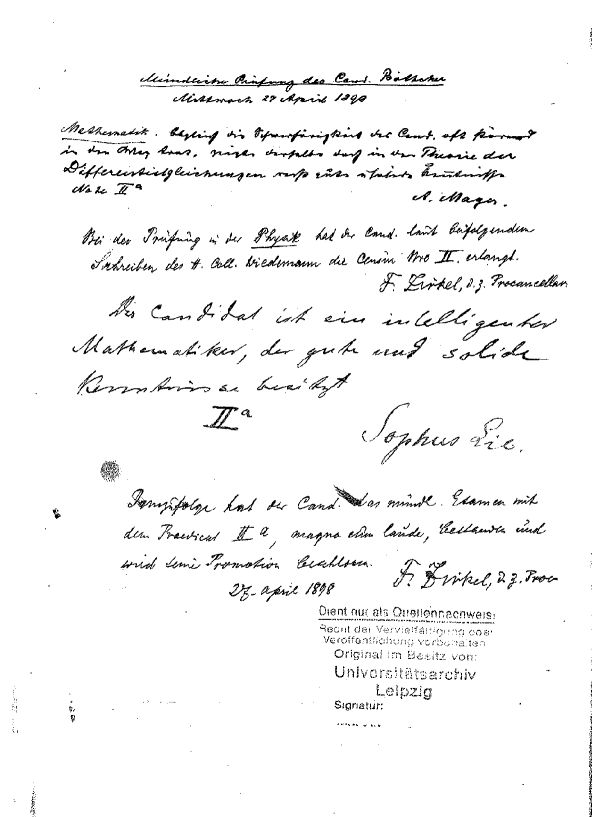 Mündliche Prüfung des Cand. Böttcher
Mittwoch 27 April 1898
Mathematik. die Schwerhörigkeit des Cand. oft
in den derselbe doch in der Theorie der
Differentialgleichungen recht gute Kenntnisse
Note II a
A. Mayer.
Bei der Prüfung in der Physik hat der Cand. laut beifolgendem
Schreiben des H. Coll. Wiedemann die Censur Nro II. erlangt.
F. Zirkel, d. z. Procancellar
Der Candidat ist ein intelligenter
Mathematiker, der gute und solide
Kenntnisse besitzt
II a
Sophus Lie.
Demzufolge hat der Cand. das mündl. Examen mit
dem Praedicat II a, magna cum laude, bestanden und
wird seine Promotion beschlossen.
F. Zirkel, d. z. Proc
27. April 1898
Dient nur als Quellennachweis!
Recht der Vervielfältigung oder
Veröffentlichung vorbehalten
Original im Besitz von:
Universitätsarchiv
Leipzig
Signatur: